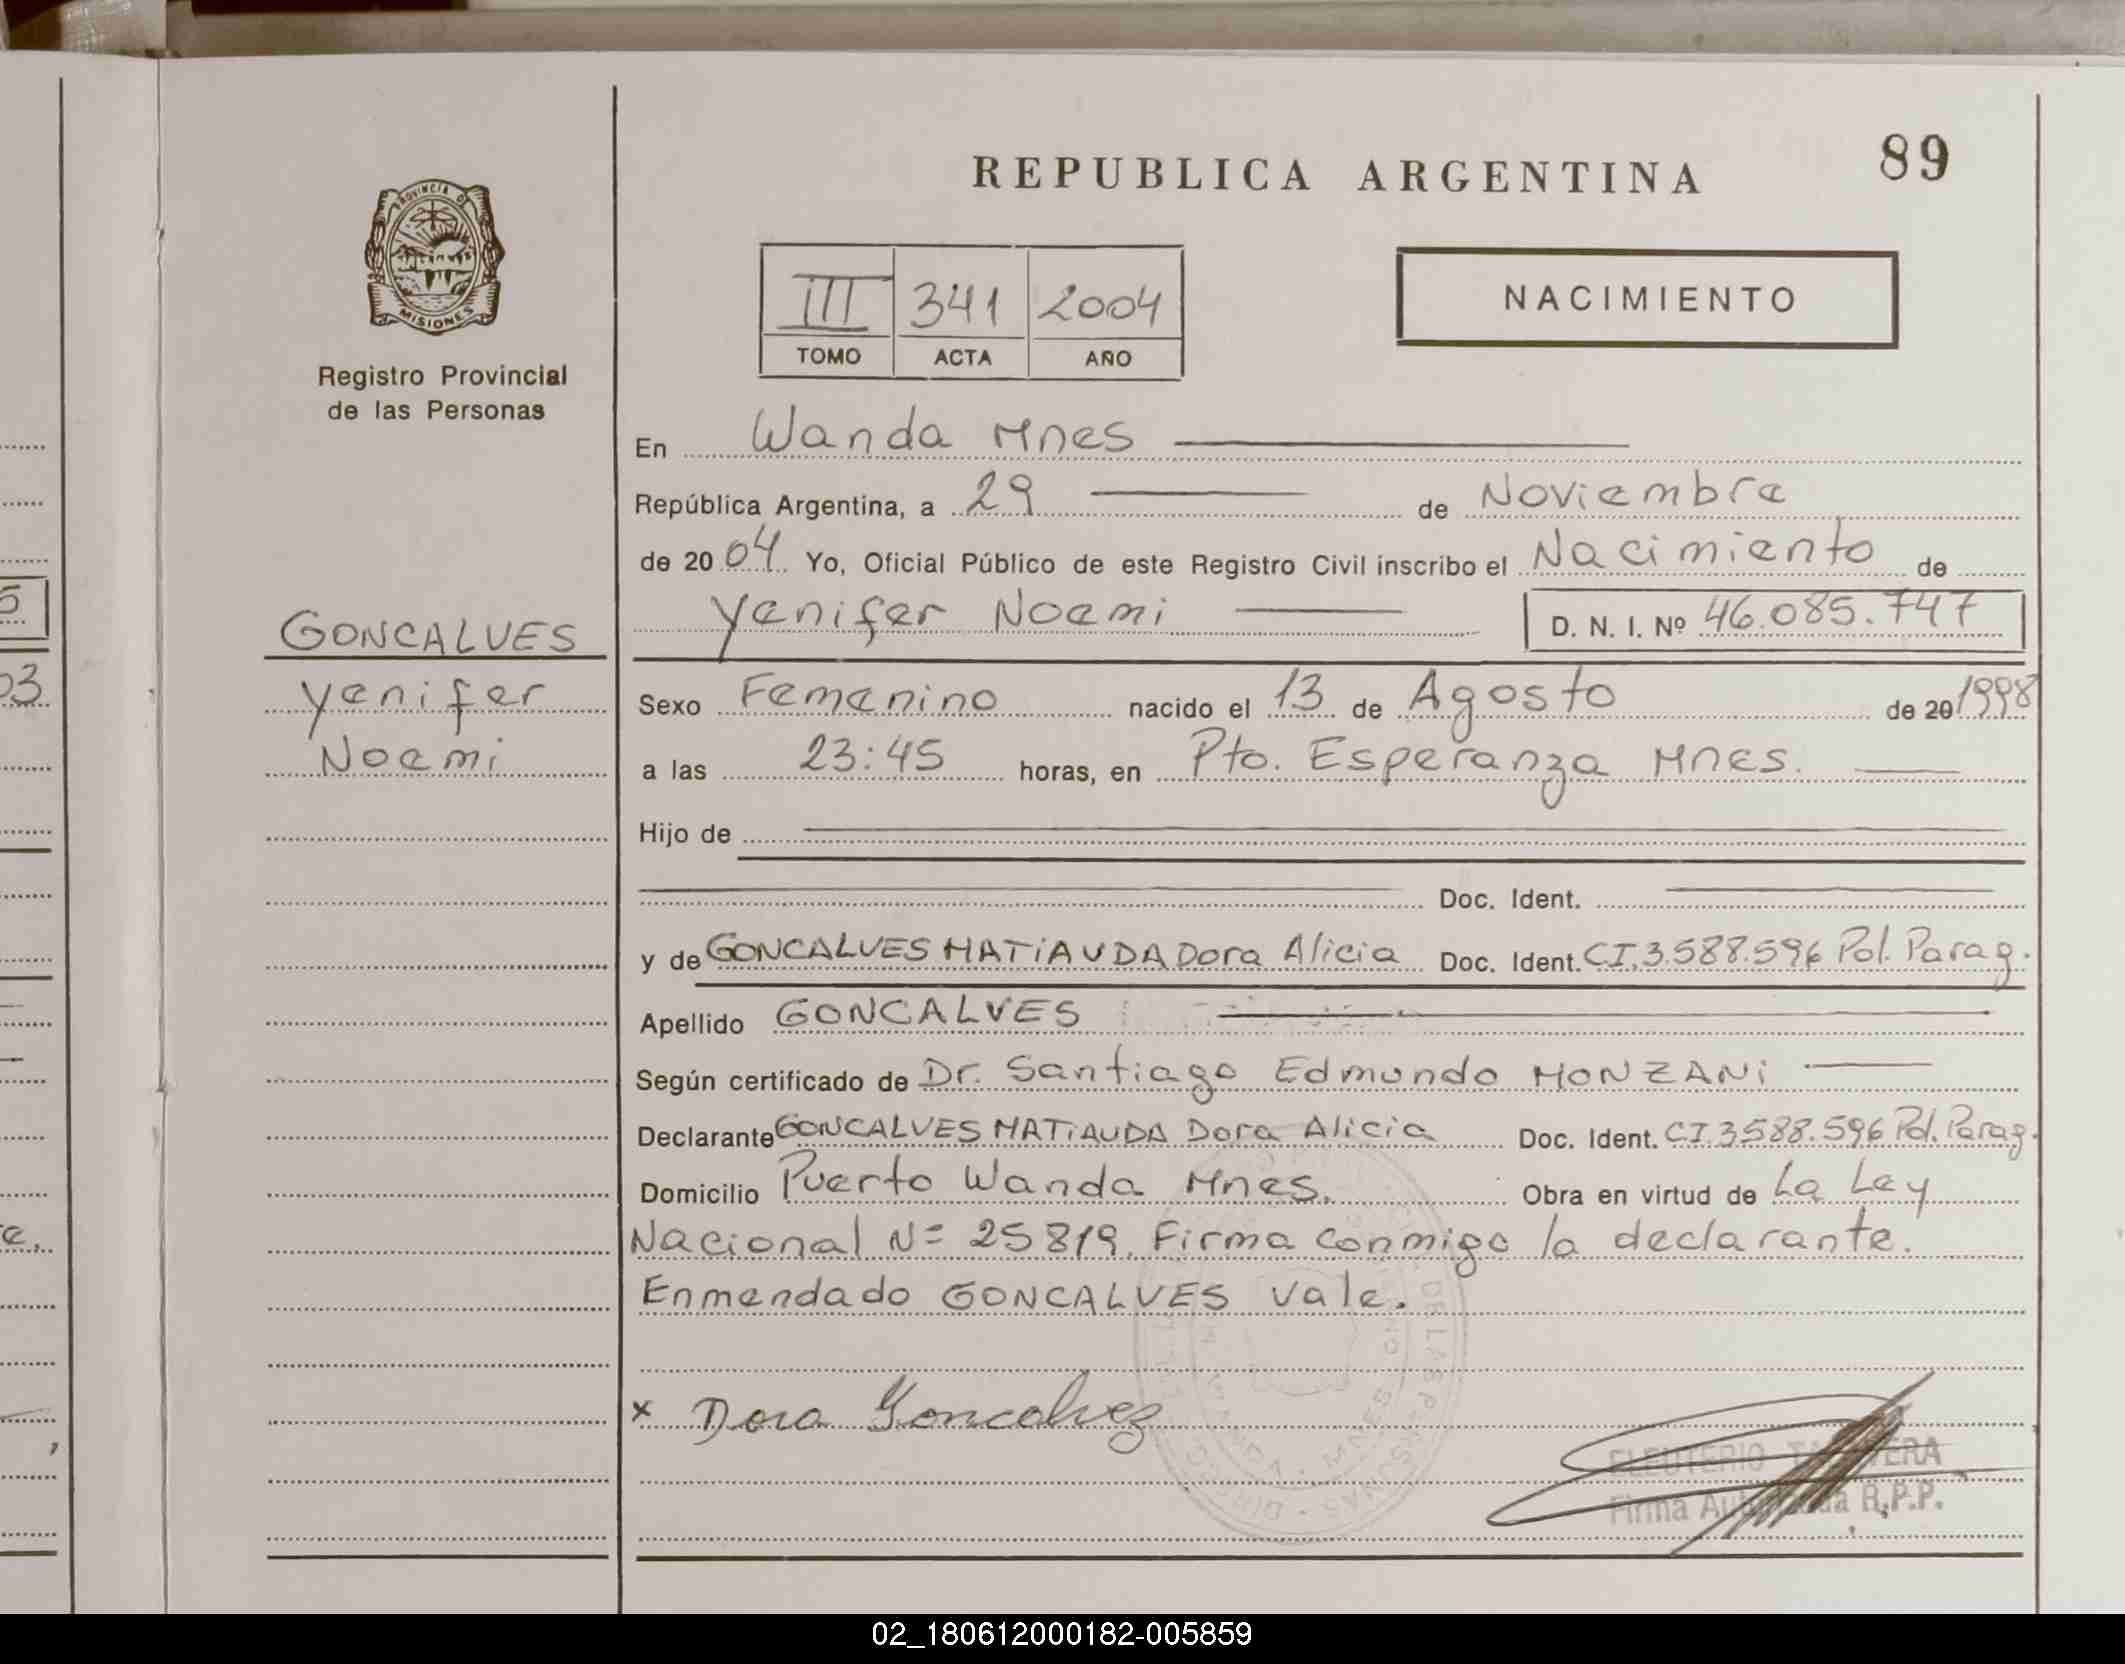 REPUBLICA ARGENTINA
89
PROVINCIA DE
MISIONES
Registro Provincial
de las Personas
III 341 2004
TOMO ACTA AÑO
NACIMIENTO
En Wanda Mnes
República Argentina, a 29 de Noviembre
de 2004 Yo, Oficial Público de este Registro Civil inscribo el Nacimiento de
Yenifer Noemi D. N. I. Nº 46.085.747
GONCALVES
Yenifer
Noemi
Sexo Femenino nacido el 13 de Agosto de 20 1998
a las 23:45 horas, en Pto. Esperanza Mnes.
Hijo de
Doc. Ident.
y de GONCALVES MATiAUDA Dora Alicia Doc. Ident. CI.3.588.596 Pol. Parag.
Apellido GONCALVES
Según certificado de Dr. Santiago Edmundo MONZANi
Declarante GONCALVES MATiAUDA Dora Alicia Doc. Ident. CI.3588.596 Pol. Parag.
Domicilio Puerto Wanda Mnes. Obra en virtud de La Ley
Nacional N= 25819. Firma conmigo la declarante.
Enmendado GONCALVES vale.
x Dora Goncalvez
ELEUTERIO
Firma R.P.P.
02_180612000182-005859